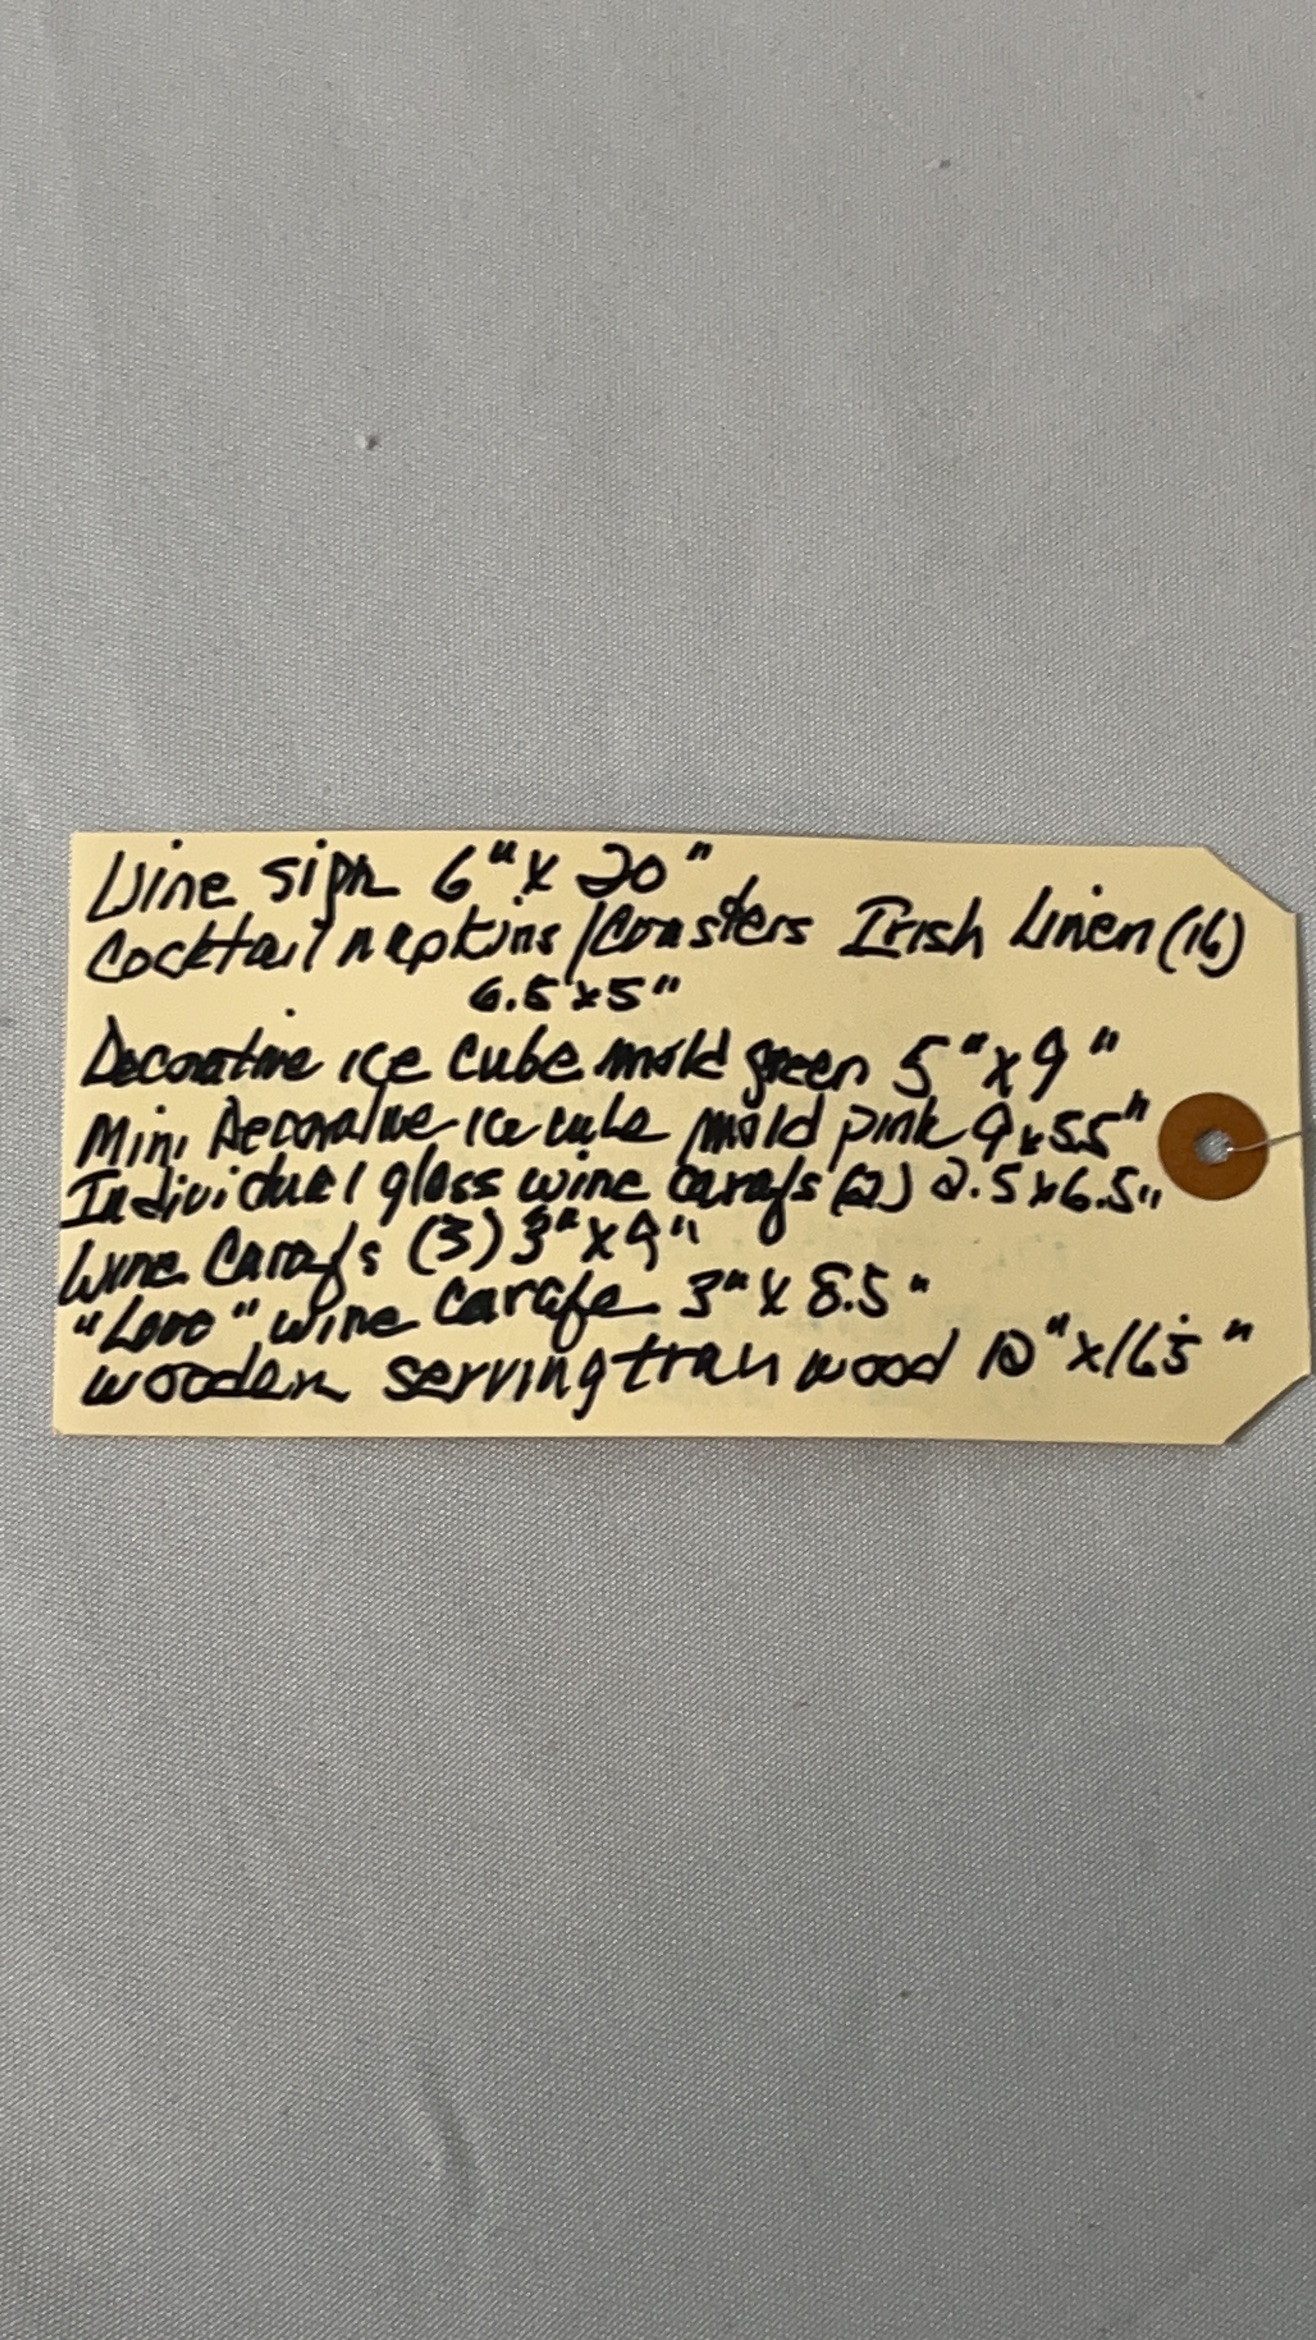 Wine sign 6" x 20"
Cocktail napkins/Coasters Irish Linen (16)
6.5 x 5"
Decorative ice cube mold green 5" x 9"
Mini Decorative ice cube mold pink 9 x 5.5"
Individual glass wine carafs (2) 2.5 x 6.5"
Wine Carafs (3) 3" x 9"
" " wine carafe 3" x 8.5"
wooden serving tray wood " x 16.5"